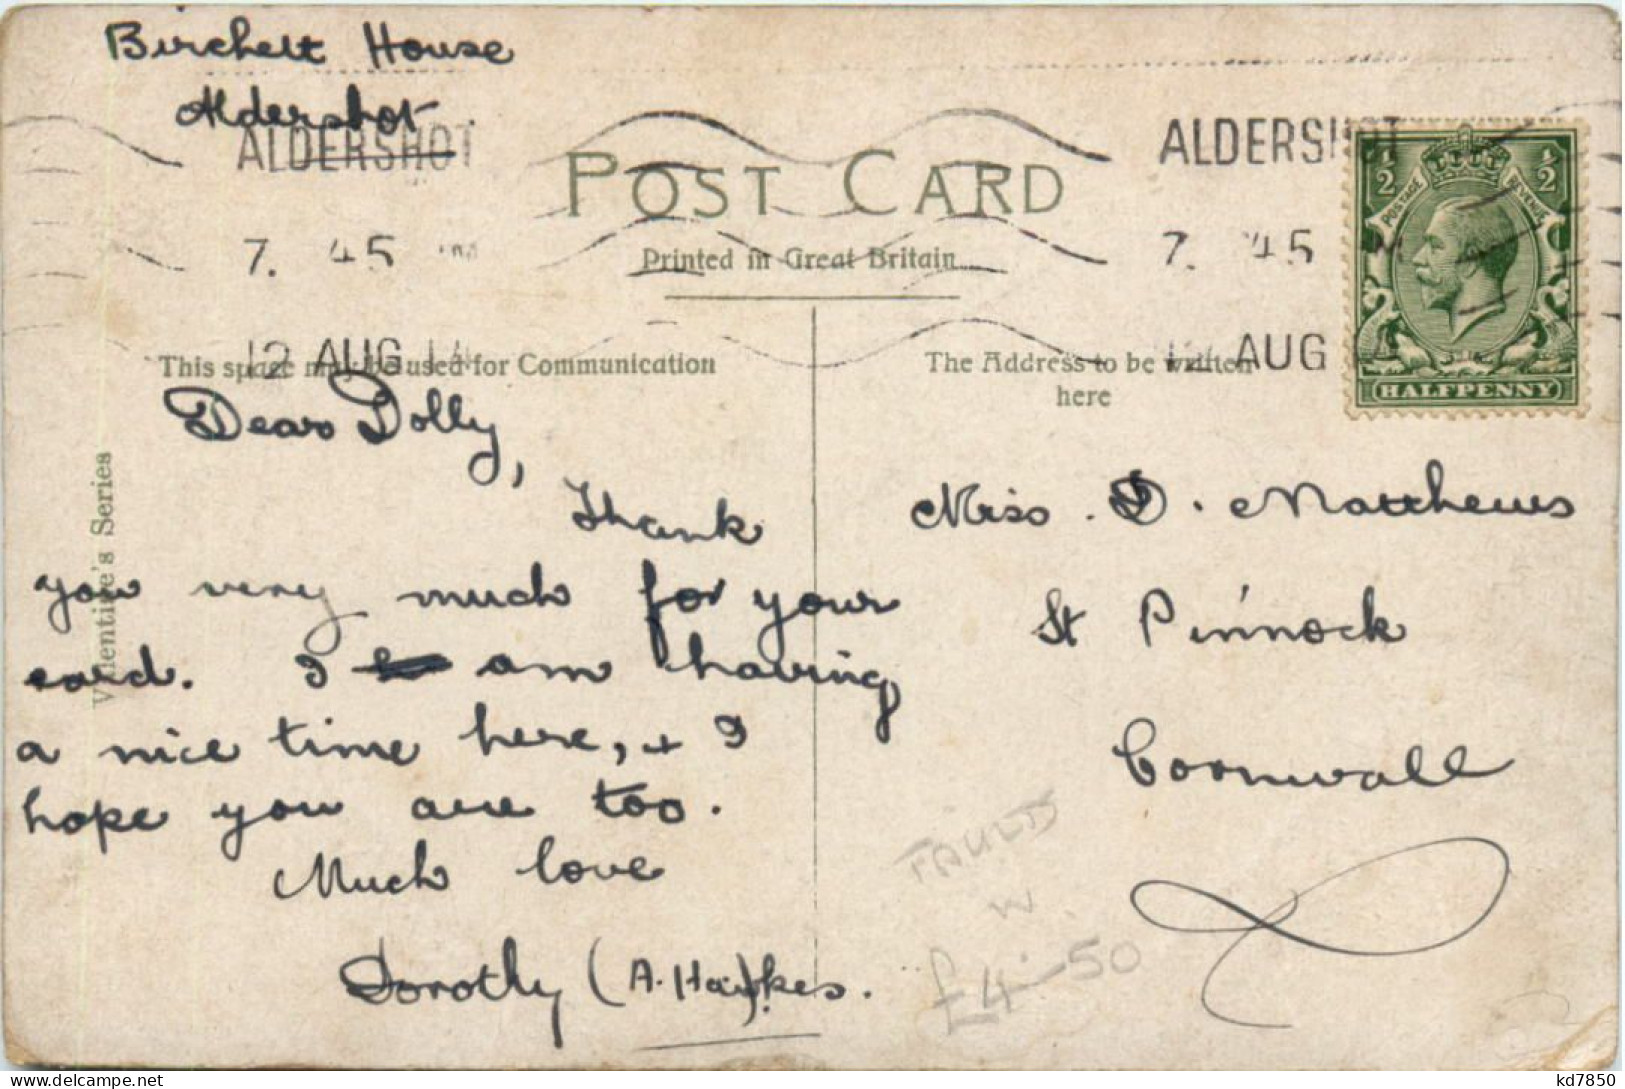 Birchett House
Aldershot
ALDERSHOT
7. 45 PM
12 AUG 14
POST CARD
Printed in Great Britain
ALDERSHOT
7. 45
12 AUG
1/2 1/2
POSTAGE REVENUE
HALFPENNY
This space may be used for Communication
The Address to be written
here
Valentine's Series
Dear Dolly,
Thank
you very much for your
card. I am having
a nice time here, + I
hope you are too.
Much love
Dorothy (A. Hawkes.
Miss. D. Matthews
St Pinnock
Cornwall
£4-50
kd7850